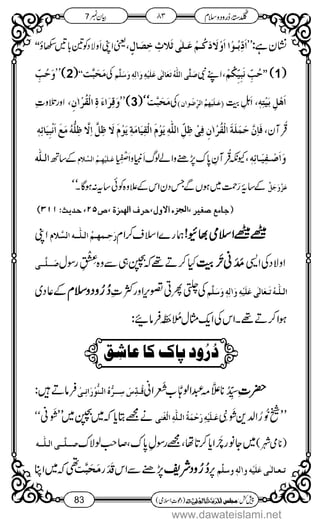 بیان نمبر 7
۸۳
گلدستۂ دُرود و سلام
نشان ہے: ’’اَدِّبُوْا اَوْلَادَكُمْ عَلٰى ثَلَاثِ خِصَالٍ، یعنی اپنی اَولاد کو تین باتیں سکھاؤ‘‘
(1) ’’حُبِّ نَبِیِّكُمْ، اپنے نبی صلَّی اللہُ تعالٰی علیہِ واٰلہٖ وسلَّم کی مَحَبَّت‘‘ (2) ’’وَحُبِّ
اَھْلِ بَیْتِہٖ، اہلِ بیت (عَلَیْہِمُ الرِّضْوَان) کی مَحَبَّت‘‘ (3) ’’وَقِرَاءَةِ الْقُرْاٰنِ، اور تلاوتِ
قرآن، فَاِنَّ حَمَلَةَ الْقُرْاٰنِ فِیْ ظِلِّ اللّٰہِ یَوْمَ الْقِیَامَةِ یَوْمَ لَا ظِلَّ اِلَّا ظِلُّہٗ مَعَ اَنْبِیَائِہٖ
وَاَصْفِیَائِہٖ، کیونکہ قرآنِ پاک پڑھنے والے لوگ انبیا و اَصفیا عَلَیْہِمُ السَّلَام کے ساتھ اللہ
عَزَّوَجَلَّ کے سایۂ رحمت میں ہوں گے جس دن اس کے سایہ کے علاوہ کوئی سایہ نہ ہوگا۔‘‘
(جامع صغیر، الجزء الاول، حرف الھمزۃ، ص۲۵، حدیث: ۳۱۱)
میٹھے میٹھے اسلامی بھائیو! ہمارے اسلافِ کرام رَحِمَہُمُ اللہُ السَّلَام اپنی
اولاد کی ایسی مَدَنی تربیت کیا کرتے تھے کہ بچپن ہی سے وہ عشقِ رسول صلَّی
اللہُ تعالٰی علیہِ واٰلہٖ وسلَّم کی چلتی پھرتی تصویر اور کثرتِ دُرُود و سلام کے عادی
ہوا کرتے تھے۔ اس کی ایک مثال مُلاحَظہ فرمائیے:
دُرُودِ پاک کا عاشِق
حضرت سیّدنا علّامہ عبدالوہّاب شَعرانی قُدِّسَ سِرُّہُ النُّوْرَانِی فرماتے ہیں:
’’شیخ نورُالدین شونی رَحْمَۃُ اللہِ عَلَیْہ نے مجھے بتایا کہ میں بچپن میں ’’شونی‘‘
(نامی شہر) میں جانور چَرایا کرتا تھا، مجھے رسولِ پاک، صاحبِ لولاک صلَّی اللہُ
تعالٰی علیہِ واٰلہٖ وسلَّم پر دُرُود شریف پڑھنے سے اس قَدَر مَحَبَّت تھی کہ میں اپنا
83
پیش کش: مجلس اَلْمَدِیْنَۃُ الْعِلْمِیَّۃ (دعوتِ اسلامی)
www.dawateislami.net